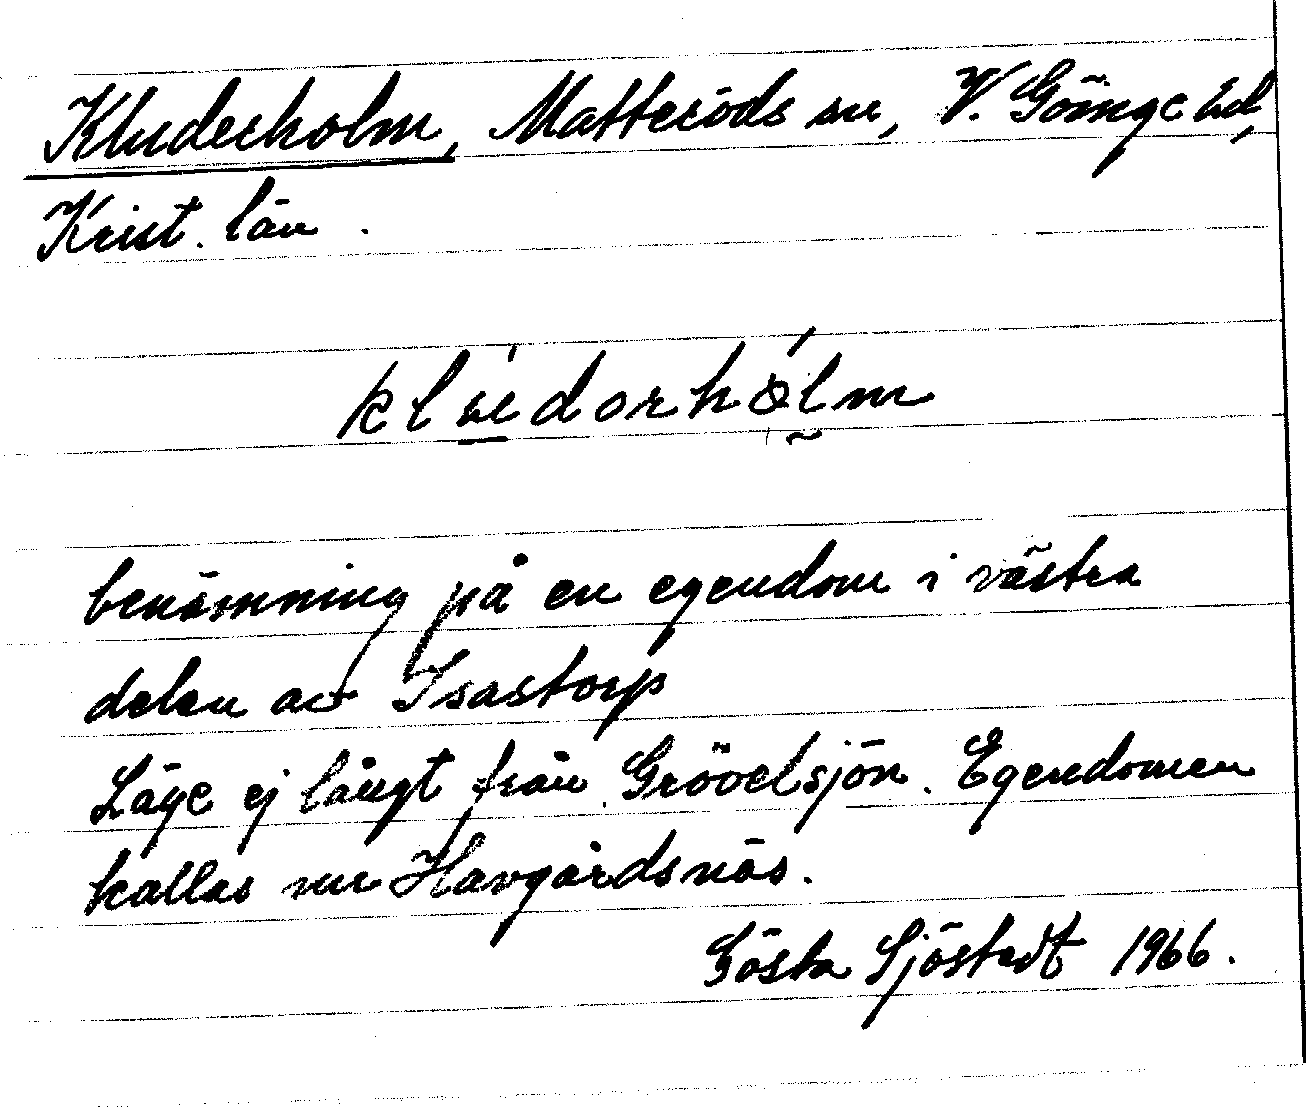 Kluderholm, Matteröds sn, V. Göinge hd,
Krist. län.
benämning på en egendom i västra
delen av Isastorp
Läge ej långt från Gröoelsjön. Egendomen
kallas nu Havgårdsnäs.
Gösta Sjöstedt 1966.